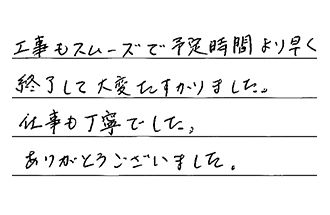 工事もスムーズで予定時間より早く
終了して大変たすかりました。
仕事も丁寧でした、
ありがとうございました。